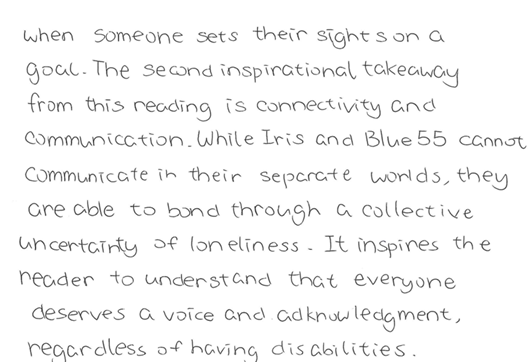 when someone sets their sights on a
goal. The second inspirational takeaway
from this reading is connectivity and
communication. While Iris and Blue 55 cannot
communicate in their separate worlds, they
are able to bond through a collective
uncertainty of loneliness. It inspires the
reader to understand that everyone
deserves a voice and adknowledgment,
regardless of having disabilities.